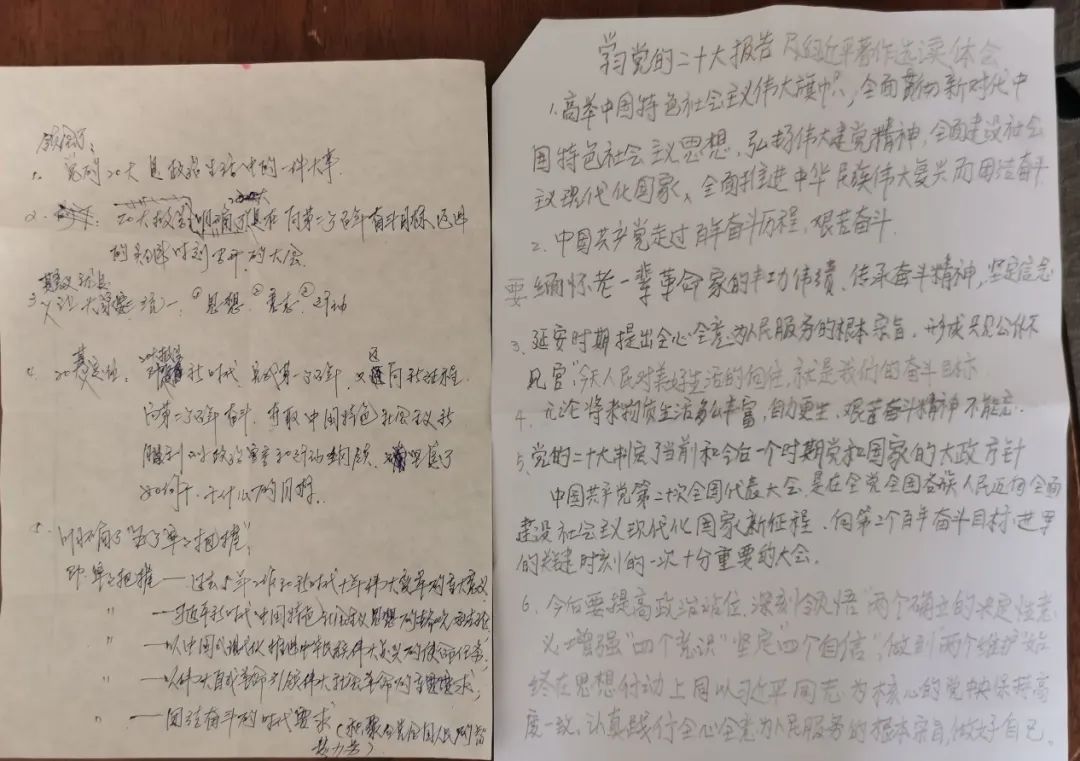 1. 党的20大是政治生活中的一件大事.
2. 20大报告明确了是在向第二个百年奋斗目标迈进
的关键时刻召开的大会.
统一、①思想、②意志、③行动
新时代、第一个百年、向新征程
向第二个百年奋斗、夺取中国特色社会主义新
胜利的政治宣言和行动纲领、
如何干、干什么的目标.
5.
即: 牢牢把握——过去5年工作和新时代十年伟大变革的重大意义
〃 ——习近平新时代中国特色社会主义思想的
〃 ——以中国式现代化推进中华民族伟大复兴的使命任务;
〃 ——以伟大自我革命引领伟大社会革命的重要要求;
〃 ——团结奋斗的时代要求 (凝聚全党全国人民的智
慧力量).
学习党的二十大报告及习近平著作选读体会
1.高举中国特色社会主义伟大旗帜,全面贯彻新时代中
国特色社会主义思想,弘扬伟大建党精神,全面建设社会
主义现代化国家、全面推进中华民族伟大复兴而团结奋斗.
2. 中国共产党走过百年奋斗历程,艰苦奋斗.
要缅怀老一辈革命家的丰功伟绩、传承奋斗精神,坚定信念
3. 延安时期提出全心全意为人民服务的根本宗旨.形成只见公仆不
见官,今天人民对美好生活的向往,就是我们的奋斗目标
4. 无论将来物质生活多么丰富,自力更生、艰苦奋斗精神不能忘.
5、党的二十大制定了当前和今后一个时期党和国家的大政方针
中国共产党第二十次全国代表大会、是在全党全国各族人民迈向全面
建设社会主义现代化国家新征程、向第2个百年奋斗目标进军
的关键时刻的一次十分重要的大会.
6、今后要提高政治站位,深刻领悟"两个确立的决定性意
义"增强"四个意识"坚定"四个自信",做到两个维护"始
终在思想行动上同以习近平同志为核心的党中央保持高
度一致、认真践行全心全意为人民服务的根本宗旨,做好自己.